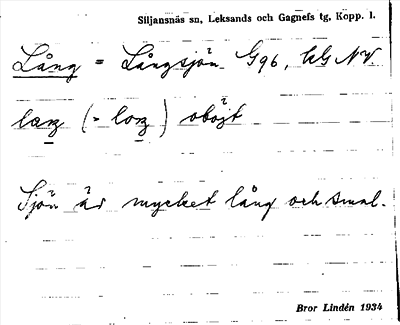 Siljansnäs sn, Leksands och Gagnefs tg, Kopp. l.
Lång = Långsjön G96, NV
(= ) oböjt
Sjön är mycket lång och smal.
Bror Lindén 1934